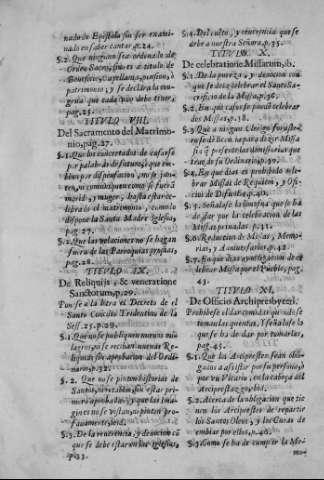 nado de Epistola sin ser exami-
nado en saber cantar, p.24.
§.2. Que ninguno sea ordenado de
Orden Sacro, sino es a titulo de
Beneficio, Capellania, pension, ò
patrimonio; y se declara la con-
grua que cada uno debe tener,
pag. 25.
TITULO VIII.
Del Sacramento del Matrimo-
nio, pag. 27.
§.1. Que los concertados de casarse
por palabras de futuro; que em-
bien por dispensacion, no se jun-
ten, ni comuniquen como si fuera
marid, y muger, hasta estar ce-
lebrado el matrimonio, como lo
dispone la Santa Madre Iglesia,
pag. 27.
§.2. Que las velaciones no se hagan
fuera de las Parroquias propias,
pag. 28.
TITULO IX.
De Reliquijs, & veneratione
Sanctorum, p. 29.
Ponese a la letra el Decreto de el
Santo Concilio Tridentino de la
Sess. 25. p. 29.
§.1. Que no se publiquen nuevos mi-
lagros, ni se reciban nuevas Re-
liquias sin aprobacion del Ordi-
nario, p. 32.
§.2. Que no se pinten historias de
Santos, ni retablos, sin estar pri-
mero aprobadas, y que las ima-
gines no se vistan, ni pinten pro-
fanamente, ibid.
§.3. De la reverencia, y devocion cõ
que se debe estar en las Iglesias,
p. 33.
§.4. Del culto, y reverencia que se
debe a nuestra Señora, p. 35.
TITULO X.
De celebratione Missarum, ib.
§.1. De la pureza, y devocion con
que se debe celebrar el Santo Sacri-
ficio de la Missa, p. 36.
§.2. En que casos se puede celebrar
dos Missas, p. 38.
§.3. Que a ningun Clerigo forastero
se le dè licencia para dezir Missa
si no presentare las dimissorias que
trae de su Ordinario, p. 39.
§.4. En que dias es prohibido cele-
brar Missas de Requiem, y Ofi-
cio de Difuntos, p. 40.
§.5. Señalase la limosna que se ha
de dar por la celebracion de las
Missas privadas, p. 41.
§.6. Reduccion de Missas, Memo-
rias, y Aniversarios, p. 42.
§.7. En que dias ay obligacion de ce-
lebrar Missa por el Pueblo, pag.
43.
TITULO XI.
De Officio Archipresbyteri.
Prohibese el dar comidas quando se
toman las quentas, y señalase lo
que se ha de dar por tomarlas,
pag. 45.
§.1. Que los Arciprestes sean obli-
gados a assistir por su persona, ò
por un Vicario en la cabeça del
Arciprestazgo, ibid.
§.2. Acerca de la obligacion que tie-
nen los Arciprestes de repartir
los Santos Oleos, y los Curas de
embiar por ellos, p. 46.
§.3. Como se ha de cumplir la Me-